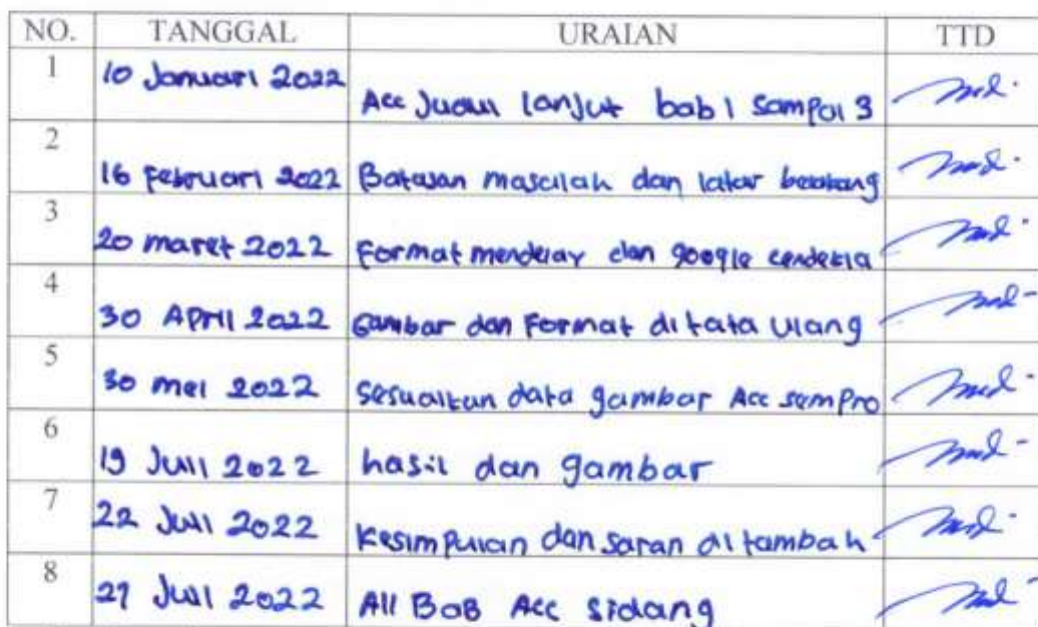 NO. TANGGAL URAIAN TTD
1 10 Januari 2022 Acc Judul lanjut bab 1 sampai 3
2 16 Februari 2022 Batasan masalah dan latar belakang
3 20 maret 2022 Format mendeley dan google cendekia
4 30 April 2022 Gambar dan Format di tata ulang
5 30 mei 2022 Sesuaikan data gambar Acc sempro
6 19 Juli 2022 hasil dan gambar
7 22 Juli 2022 Kesimpulan dan saran di tambah
8 27 Juli 2022 All BaB Acc Sidang